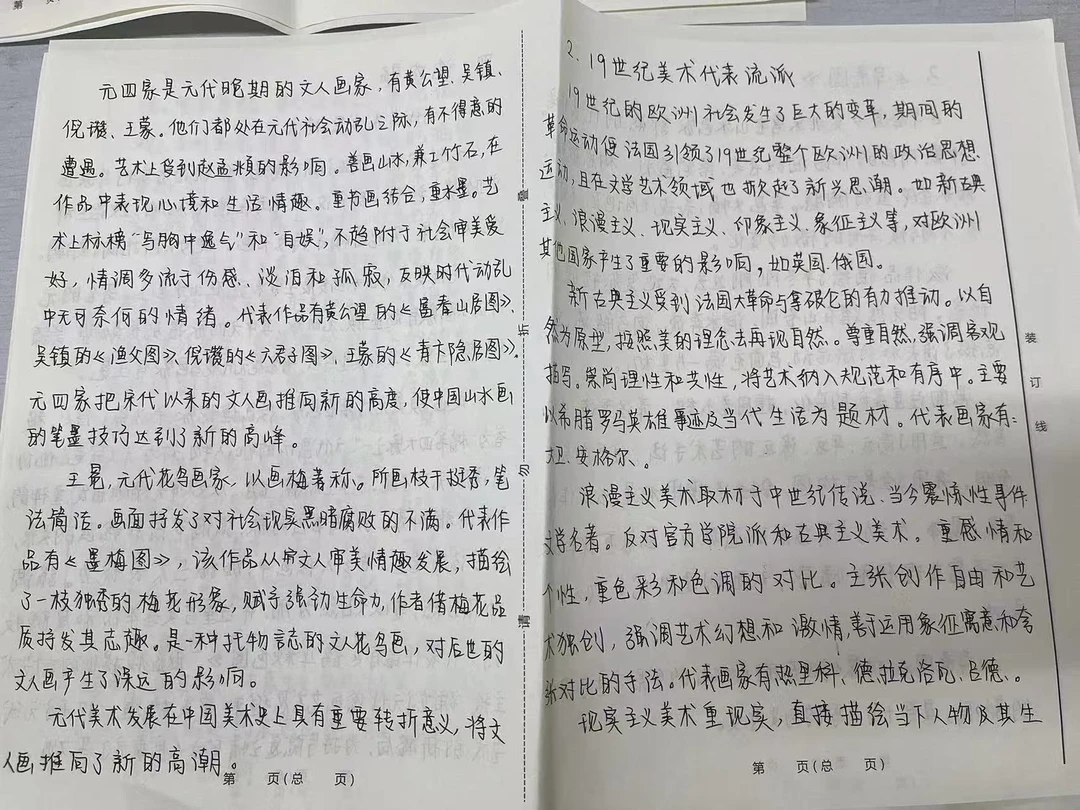 第 页(
元四家是元代晚期的文人画家，有黄公望、吴镇、
倪瓒、王蒙。他们都处在元代社会动乱之际，有不得意的
遭遇。艺术上受到赵孟頫的影响。善画山水，兼工竹石，在
作品中表现心境和生活情趣。重书画结合，重水墨。艺
术上标榜“写胸中逸气”和“自娱”，不趋附于社会审美爱
好，情调多流于伤感、淡泊和孤寂，反映时代动乱
中无可奈何的情绪。代表作品有黄公望的《富春山居图》、
吴镇的《渔父图》、倪瓒的《六君子图》、王蒙的《青卞隐居图》。
元四家把宋代以来的文人画推向新的高度，使中国山水画
的笔墨技巧达到了新的高峰。
王冕，元代花鸟画家，以画梅著称。所画枝干挺秀，笔
法简洁。画面抒发了对社会现实黑暗腐败的不满。代表作
品有《墨梅图》，该作品从文人审美情趣发展，描绘
了一枝独秀的梅花形象，赋予强劲生命力，作者借梅花品
质抒发其志趣。是一种托物言志的文人花鸟画，对后世的
文人画产生了深远的影响。
元代美术发展在中国美术史上具有重要转折意义，将文
人画推向了新的高潮。
第 页(总 页)
折
勿
请
2、19世纪美术代表流派
19世纪的欧洲社会发生了巨大的变革，期间的
革命运动使法国引领了19世纪整个欧洲的政治思想
运动，且在文学艺术领域也掀起了新兴思潮。如新古典
主义、浪漫主义、现实主义、印象主义、象征主义等，对欧洲
其他国家产生了重要的影响，如英国、俄国。
新古典主义受到法国大革命与拿破仑的有力推动。以自
然为原型，按照美的理念去再现自然。尊重自然，强调客观
描写。崇尚理性和共性，将艺术纳入规范和有序中。主要
以希腊罗马英雄事迹及当代生活为题材。代表画家有：
大卫、安格尔、。
浪漫主义美术取材于中世纪传说、当今震惊性事件
文学名著。反对官方学院派和古典主义美术。重感情和
个性，重色彩和色调的对比。主张创作自由和艺
术独创，强调艺术幻想和激情，善于运用象征寓意和夸
张对比的手法。代表画家有热里科、德拉克洛瓦、吕德、。
现实主义美术重现实，直接描绘当下人物及其生
第 页(总 页)
装
订
线